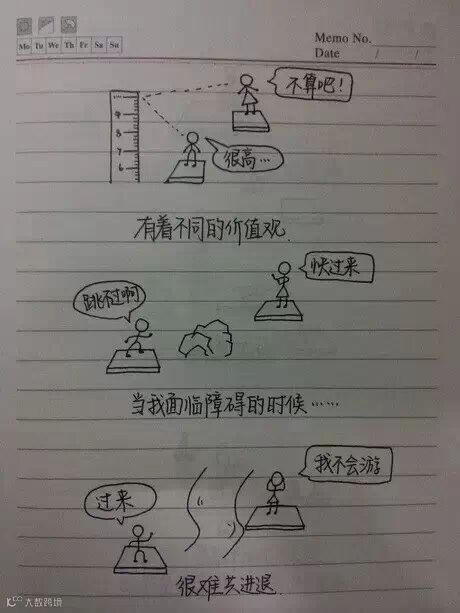 Mo Tu We Th Fr Sa Su
Memo No.
Date / /
不算吧！
很高…
9
8
7
6
有着不同的价值观.
快过来
跳不过啊
当我面临障碍的时候……
我不会游
过来
很难共进退.
大数跨境